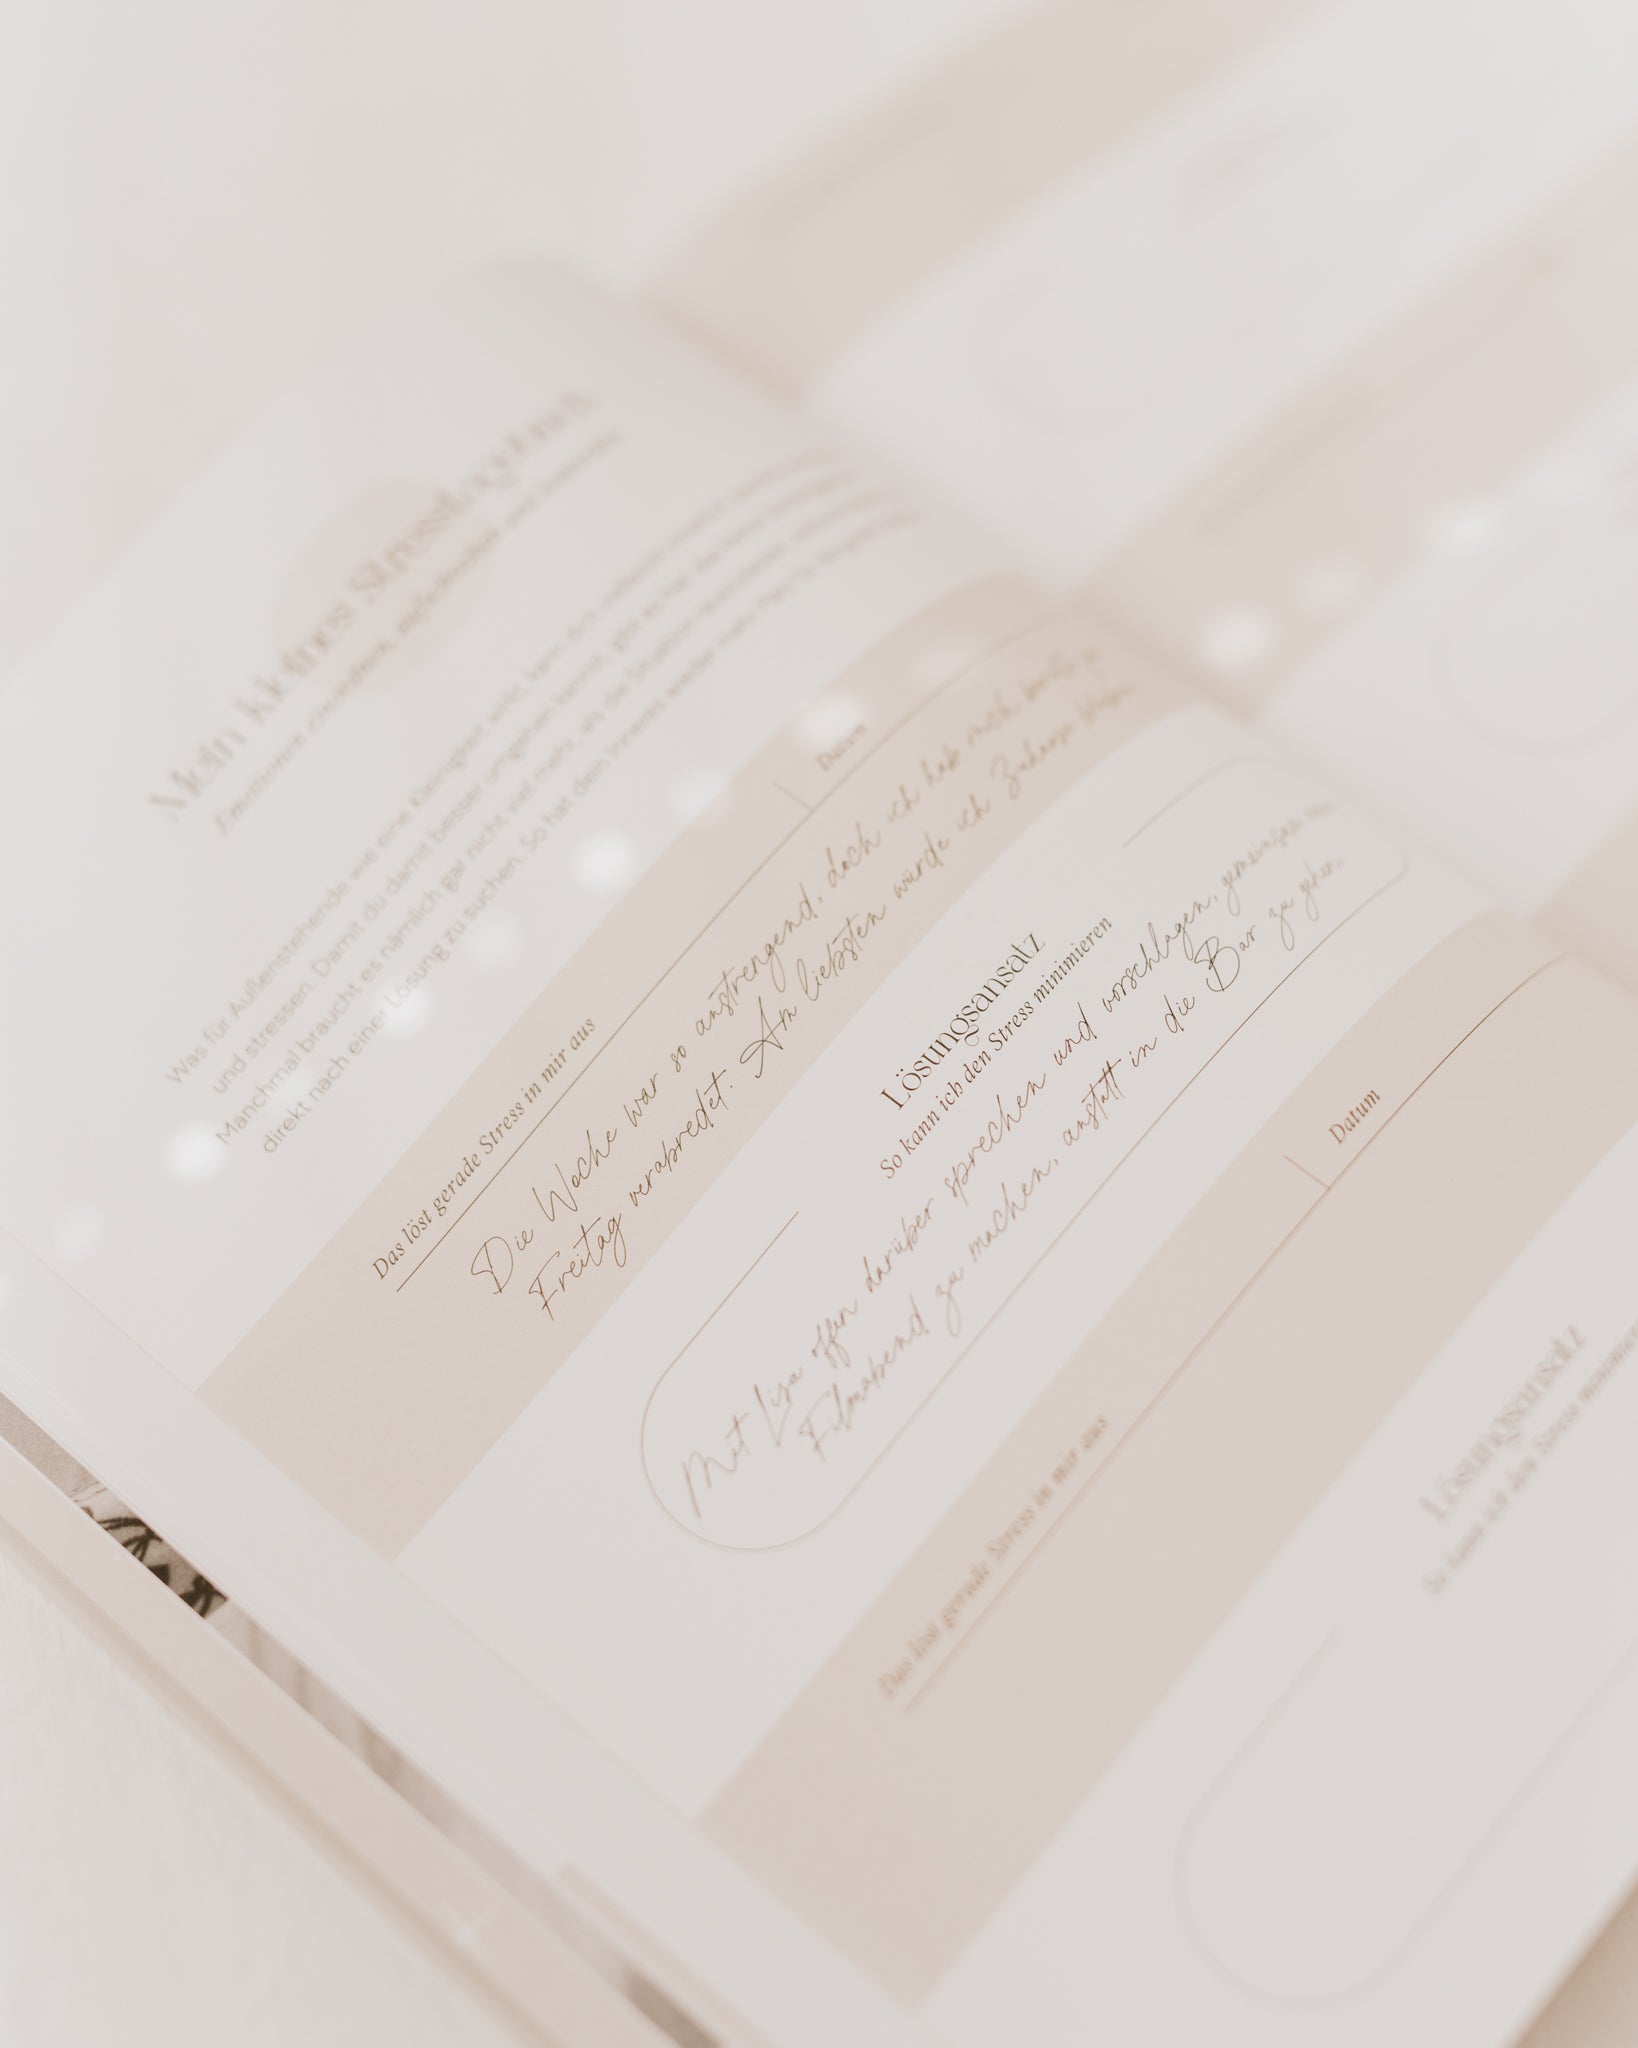 Mein kleines Stresstagebuch
Emotionen
Was für Außenstehende wie eine Kleinigkeit wirkt, kann dich
und stressen. Damit du damit besser umgehen kannst, gibt es hier
Manchmal braucht es nämlich gar nicht viel mehr, als die Situation
direkt nach einer Lösung zu suchen. So hat dein Inneres wieder mehr Platz für
Das löst gerade Stress in mir aus
Datum
Die Woche war so anstrengend, doch ich hab mich bereits für
Freitag verabredet. Am liebsten würde ich Zuhause bleiben
Lösungsansatz
So kann ich den Stress minimieren
Mit Lisa offen darüber sprechen und vorschlagen, gemeinsam nen
Filmabend zu machen, anstatt in die Bar zu gehen.
Das löst gerade Stress in mir aus
Datum
Lösungsansatz
So kann ich den Stress minimieren